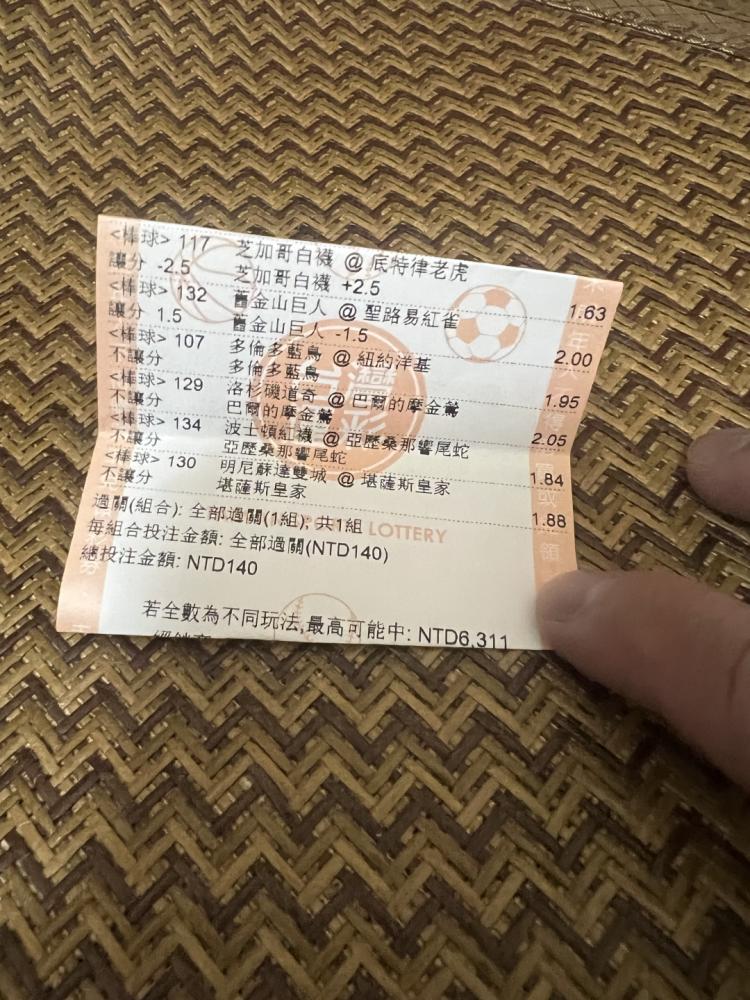 <棒球> 117 芝加哥白襪 @ 底特律老虎
讓分 -2.5 芝加哥白襪 +2.5 1.63
<棒球> 132 舊金山巨人 @ 聖路易紅雀
讓分 1.5 舊金山巨人 -1.5 2.00
<棒球> 107 多倫多藍鳥 @ 紐約洋基
不讓分 多倫多藍鳥 1.95
<棒球> 129 洛杉磯道奇 @ 巴爾的摩金鶯
不讓分 巴爾的摩金鶯 2.05
<棒球> 134 波士頓紅襪 @ 亞歷桑那響尾蛇
不讓分 亞歷桑那響尾蛇 1.84
<棒球> 130 明尼蘇達雙城 @ 堪薩斯皇家
不讓分 堪薩斯皇家 1.88
過關(組合): 全部過關(1組); 共1組
LOTTERY
每組合投注金額: 全部過關(NTD140)
總投注金額: NTD140
若全數為不同玩法,最高可能中: NTD6,311